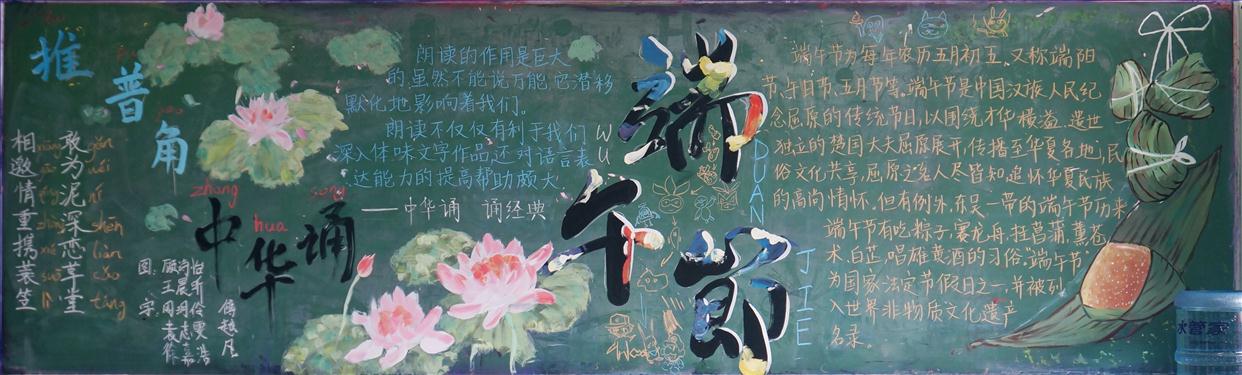 推普角
敢为泥深恋草堂
相邀情重携蓑笠
gǎn
wéi
ní
shēn
liàn
cǎo
táng
zhōng
hua
song
中华诵
图:
字:
朗读的作用是巨大
的,虽然不能说万能,它潜移
默化地影响着我们。
朗读不仅仅有利于我们
深入体味文字作品,还对语言表
达能力的提高帮助颇大。
——中华诵 诵经典
端午节
WU
DUAN
JIE
端午节为每年农历五月初五,又称端阳
节、午日节、五月节等。端午节是中国汉族人民纪
念屈原的传统节日,以围绕才华横溢、遗世
独立的楚国大夫屈原展开,传播至华夏各地,民
俗文化共享,屈原之名人尽皆知,追怀华夏民族
的高尚情怀。但有例外,东吴一带的端午节历来
端午节有吃粽子,赛龙舟,挂菖蒲,薰苍
术、白芷,喝雄黄酒的习俗。"端午节"
为国家法定节假日之一,并被列
入世界非物质文化遗产
名录。